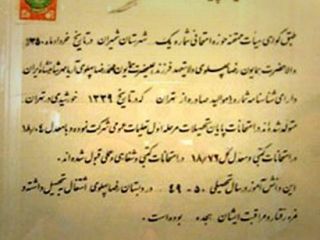 طبق گواهی هیأت ممتحنه حوزه امتحانی شماره یک شهرستان شمیران در تاریخ خرداد ماه ۱۳۵۰
والاحضرت همایون رضا پهلوی ولایتعهد فرزند اعلیحضرت همایون محمد رضا پهلوی آریامهر شاهنشاه ایران
دارای شناسنامه شماره صادره از تهران که در تاریخ ۱۳۳۹ خورشیدی در تهران
متولد شده‌اند در امتحانات پایان تحصیلات مرحله اول تعلیمات عمومی شرکت نموده و با معدل ۱۸/۰۴
در امتحانات کتبی و معدل کل ۱۸/۷۶ در امتحانات کتبی و شفاهی و عملی قبول شده‌اند.
این دانش آموز در سال تحصیلی ۵۰ - ۴۹ در دبستان رضا پهلوی اشتغال به تحصیل داشته و
نمره رفتار و مراقبت ایشان هجده بوده است.